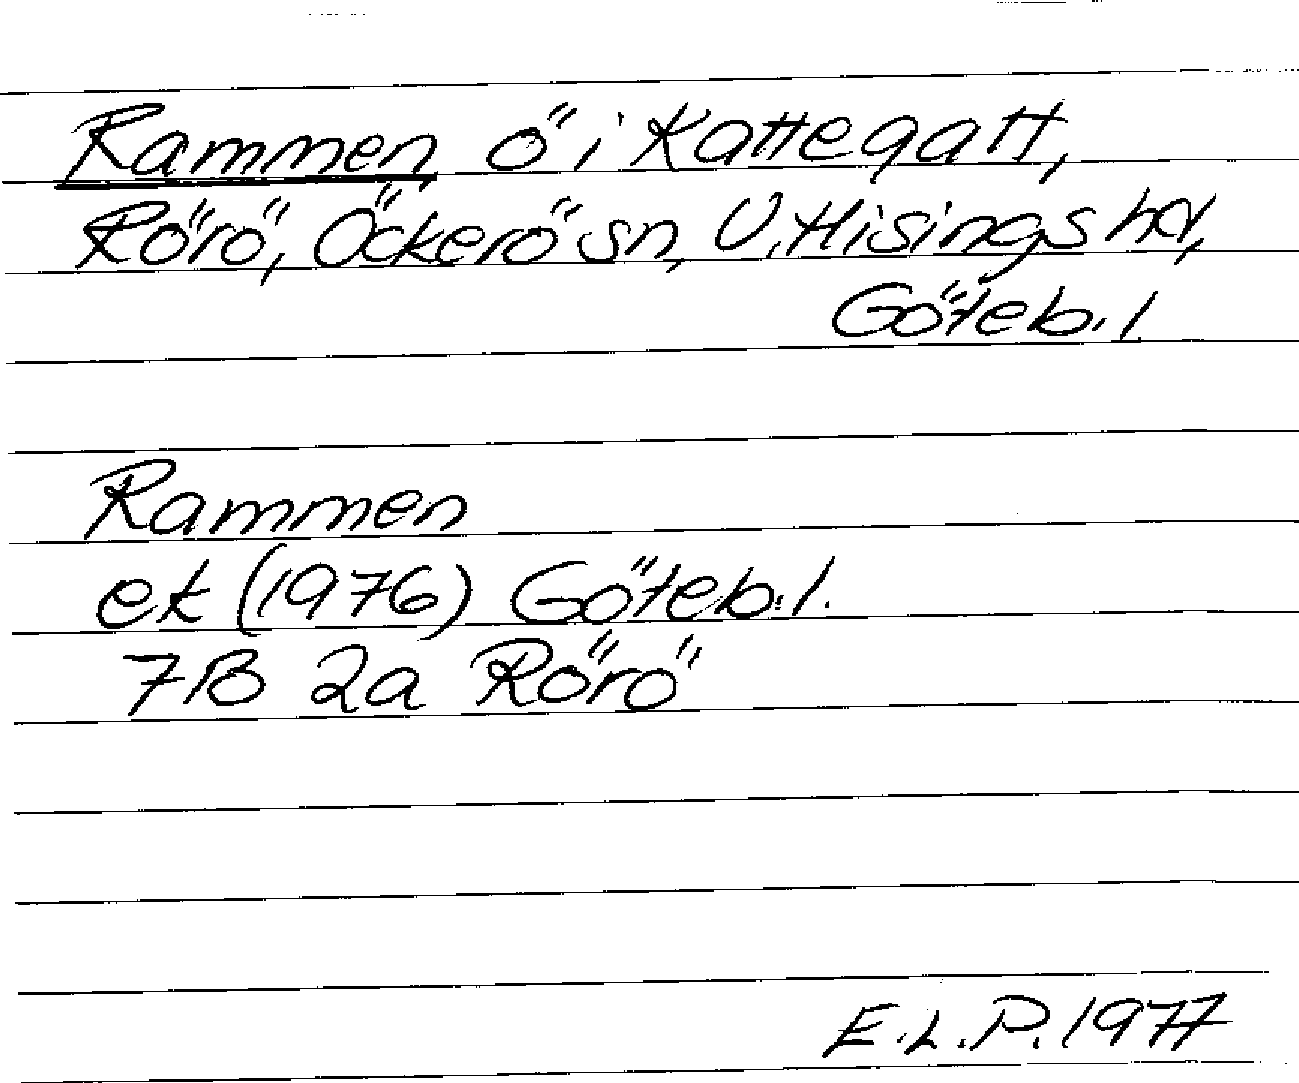 Rammen ö i Kattegatt,
Rörö, Öckerö sn, V. Hisings hd,
Göteb. l.
Rammen
ek (1976) Göteb. l.
7B 2a Rörö
E.L.P. 1977